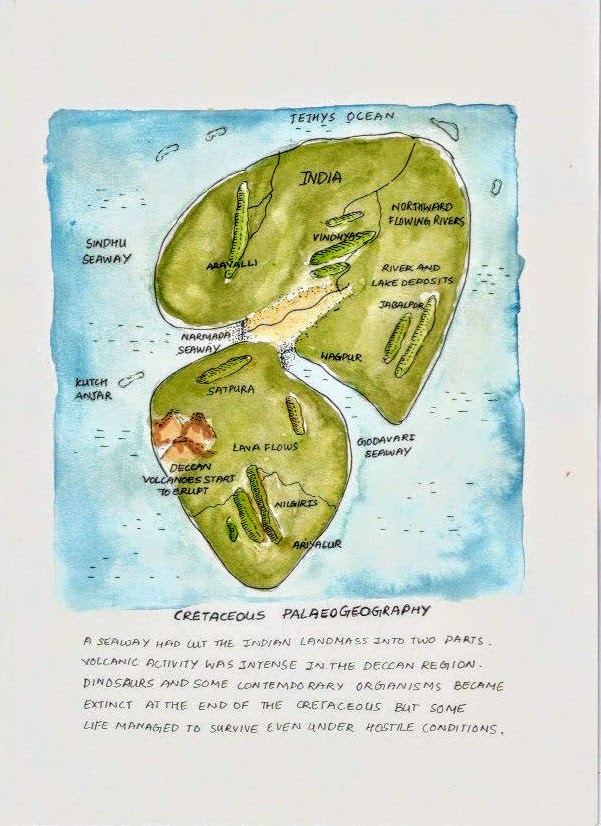 TETHYS OCEAN
INDIA
NORTHWARD
FLOWING RIVERS
SINDHU
SEAWAY
VINDHYAS
ARAVALLI
RIVER AND
LAKE DEPOSITS
JABALPUR
NARMADA
SEAWAY
NAGPUR
KUTCH
ANJAR
SATPURA
GODAVARI
SEAWAY
LAVA FLOWS
DECCAN
VOLCANOES START
TO ERUPT
NILGIRIS
ARIYALUR
CRETACEOUS PALAEOGEOGRAPHY
A SEAWAY HAD CUT THE INDIAN LANDMASS INTO TWO PARTS.
VOLCANIC ACTIVITY WAS INTENSE IN THE DECCAN REGION.
DINOSAURS AND SOME CONTEMPORARY ORGANISMS BECAME
EXTINCT AT THE END OF THE CRETACEOUS BUT SOME
LIFE MANAGED TO SURVIVE EVEN UNDER HOSTILE CONDITIONS.